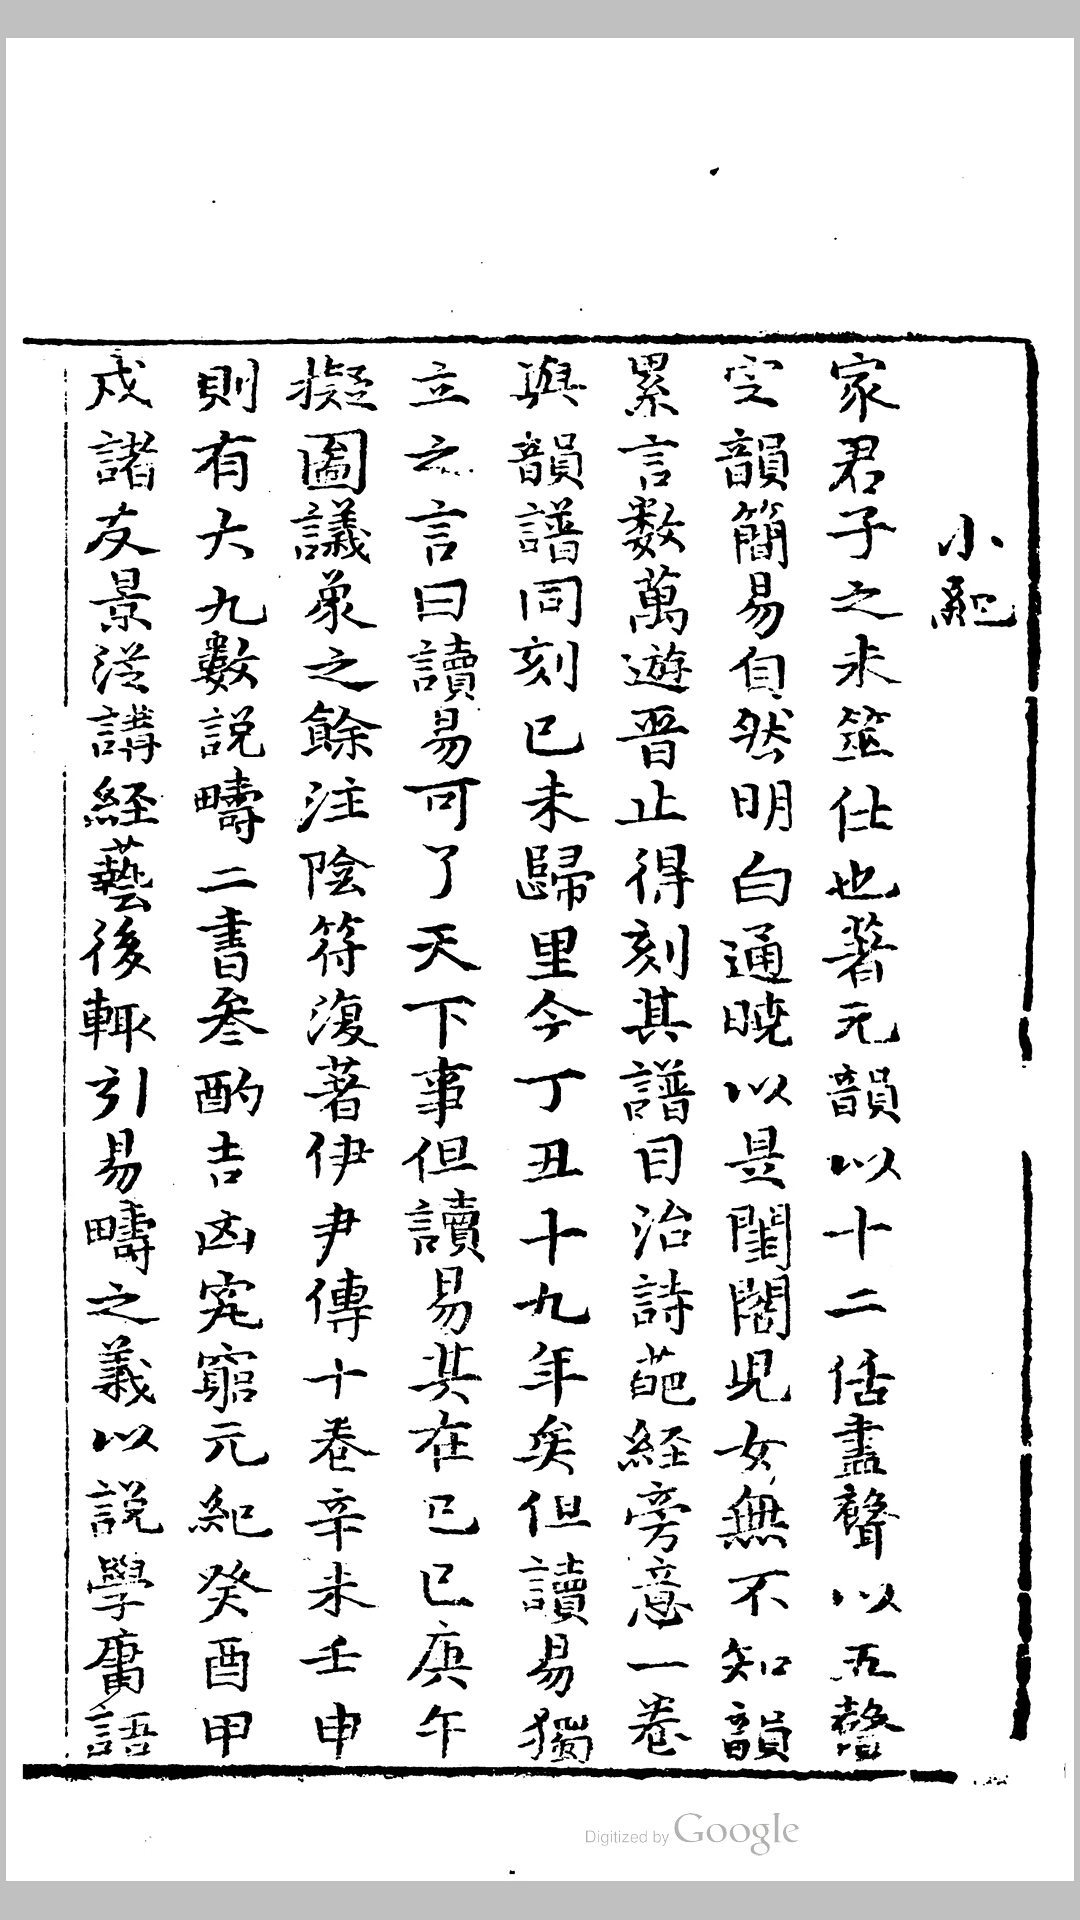 小紀
家君子之未筮仕也著元韻以十二佸盡聲以五聲
定韻簡易自然明白通曉以是閨閤児女無不知韻
累言数萬遊晋止得刻其譜目治詩葩経旁意一卷
與韻譜同刻已未歸里今丁丑十九年矣但讀易獨
立之言曰讀易可了天下事但讀易其在已巳庚午
擬圖議象之餘注陰符復著伊尹傳十卷辛未壬申
則有大九數説疇二書叅酌吉凶究窮元紀癸酉甲
戍諸友景从講経藝後輙引易疇之義以説學庸語
Digitized by Google